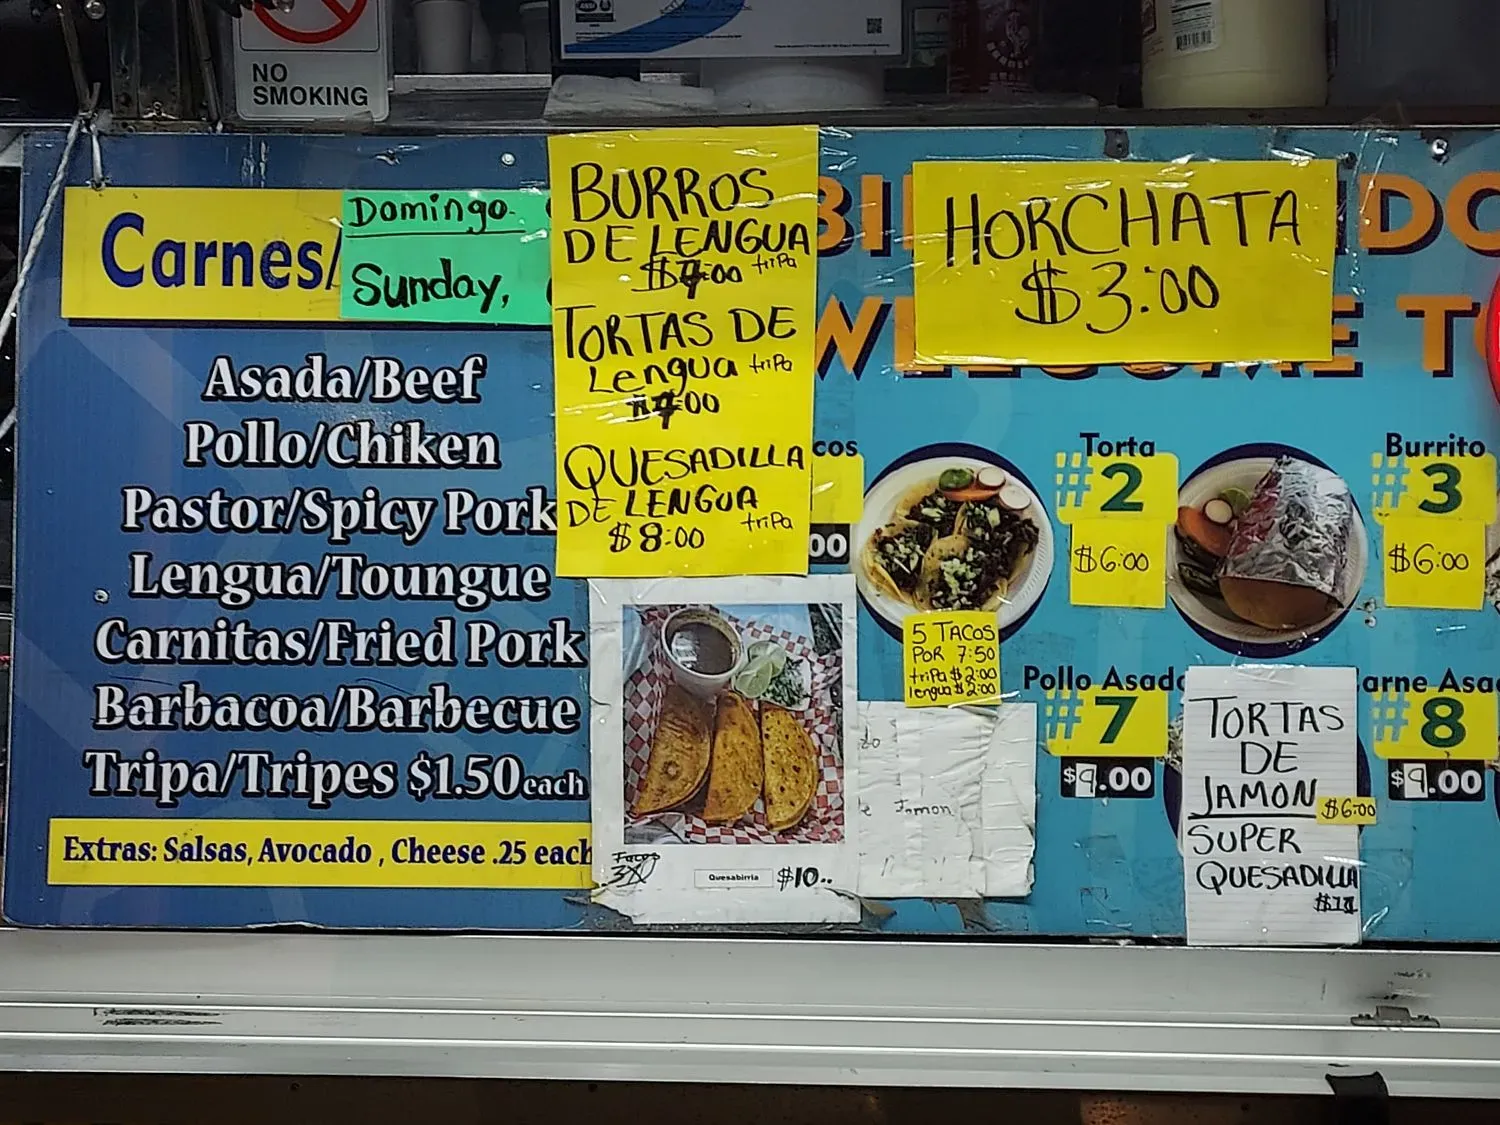 NO
SMOKING
Carnes/
Domingo.
Sunday,
Asada/Beef
Pollo/Chiken
Pastor/Spicy Pork
Lengua/Toungue
Carnitas/Fried Pork
Barbacoa/Barbecue
Tripa/Tripes $1.50 each
Extras: Salsas, Avocado , Cheese .25 each
BURROS
DE LENGUA
tripa
$7:00
TORTAS DE
Lengua tripa
$7:00
QUESADILLA
DE LENGUA
$8:00 tripa
Tacos
Quesabirria $10..
HORCHATA
$3:00
5 TACOS
POR 7:50
tripa $2:00
lengua $2:00
Jamon
Torta
#2
$6:00
Burrito
#3
$6:00
Pollo Asado
#7
$9.00
#8
$9.00
TORTAS
DE
JAMON $6:00
SUPER
QUESADILLA
$11